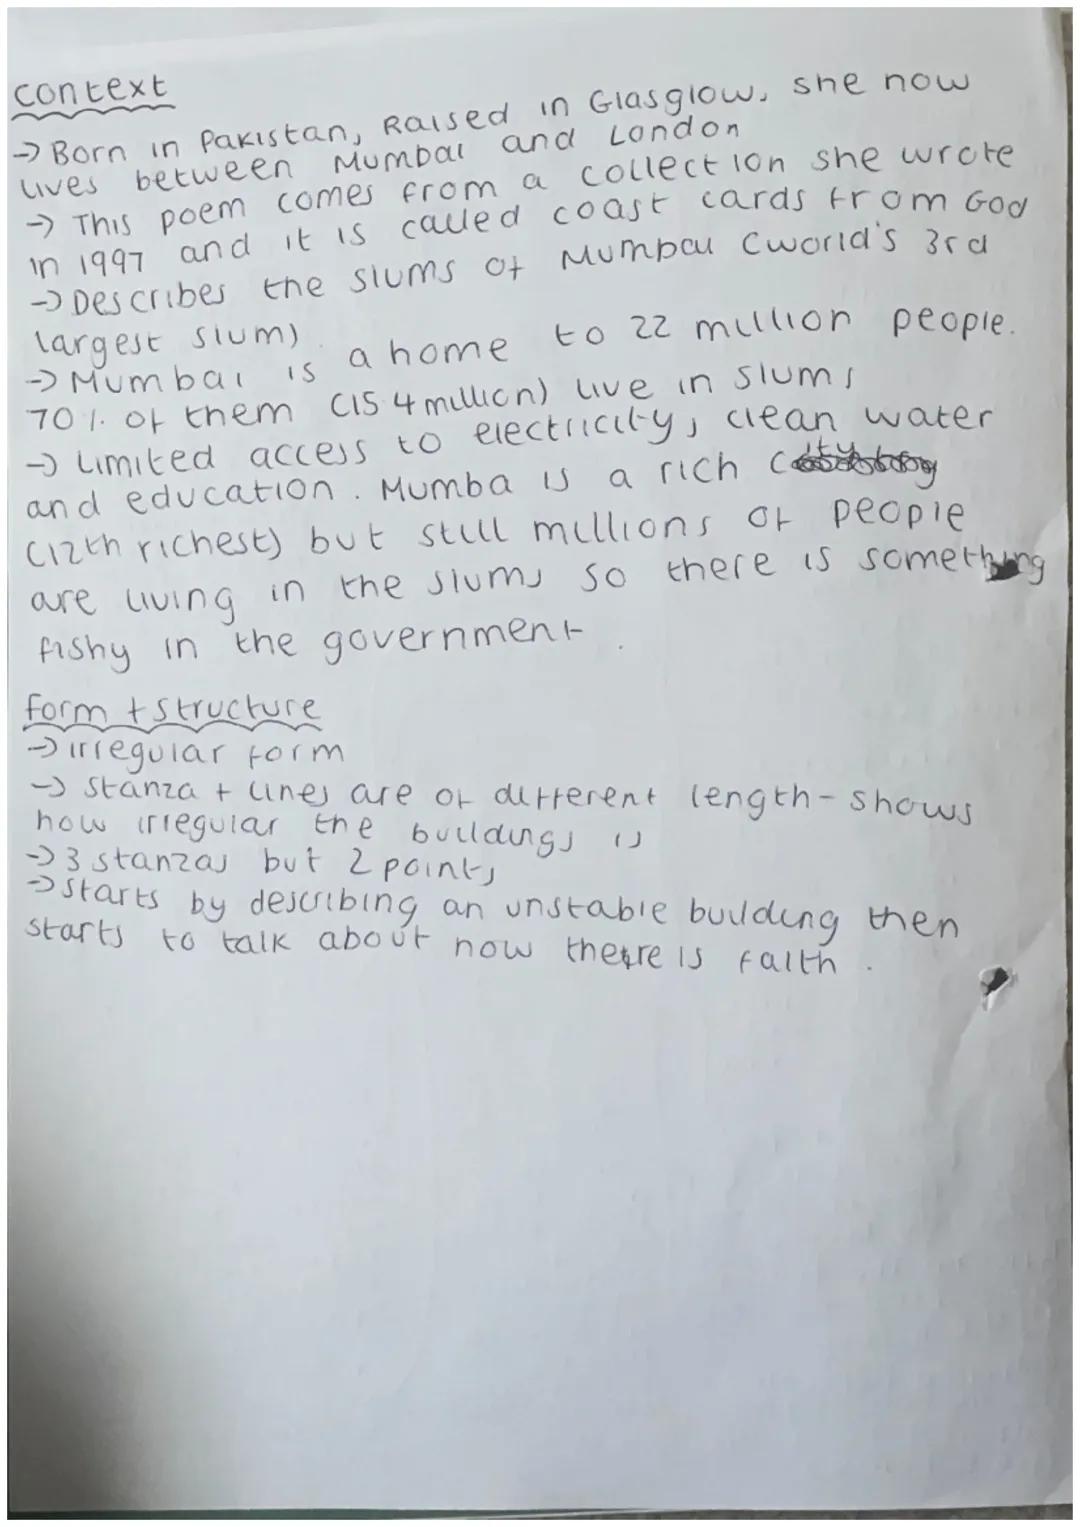 context
→ Born in Pakistan, Raised in Glasglow, she now
lives between Mumbai and London
→ This poem comes from a collection she wrote
in 1997 and it is called coast cards from God
→ Describes the slums of Mumbai (world's 3rd
largest slum)
→ Mumbai is a home to 22 million people.
70% of them (15.4 million) live in slums
→ Limited access to electricity, clean water
and education. Mumba is a rich city
(12th richest) but still millions of people
are living in the slums so there is something
fishy in the government.
form + structure
→ irregular form
→ stanza + lines are of different length - shows
how irregular the buildings is
→ 3 stanzas but 2 points
→ starts by describing an unstable building then
starts to talk about how there is faith.